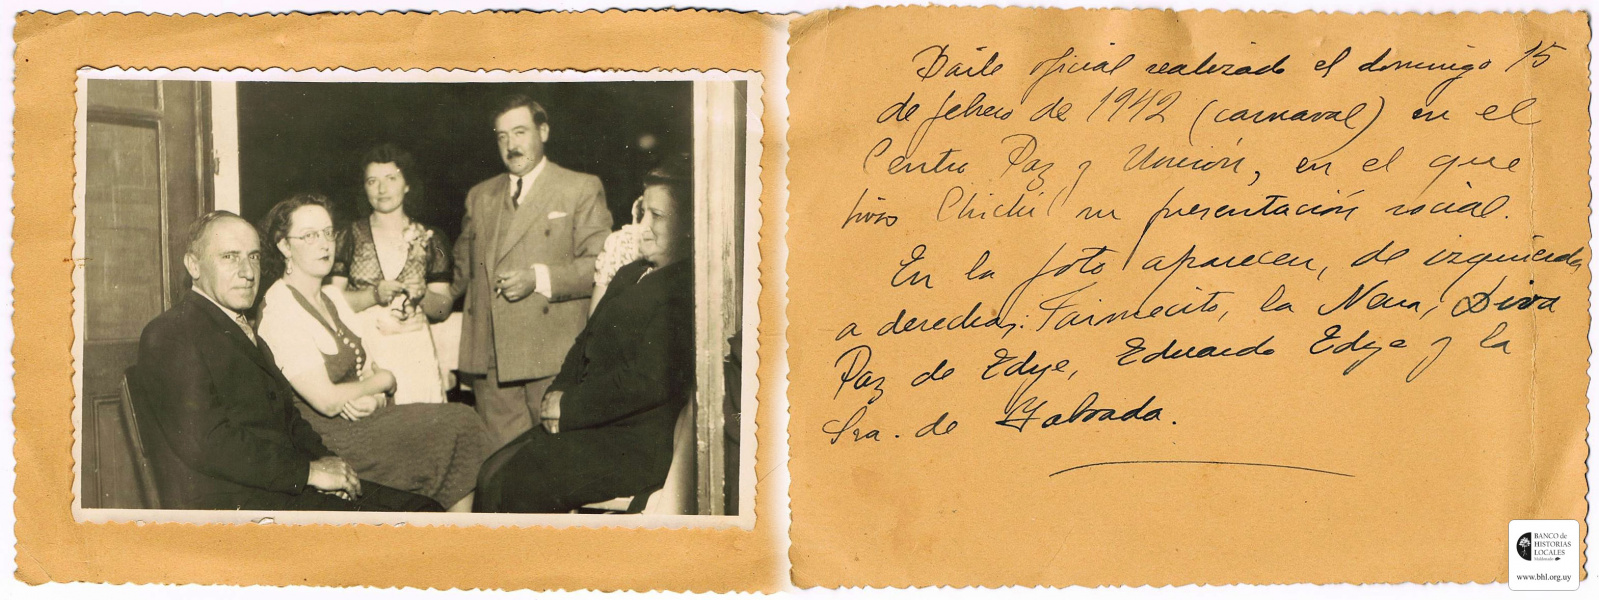 Baile oficial realizado el domingo 15
de febrero de 1942 (carnaval) en el
Centro Paz y Unión, en el que
hizo Chichí su presentación social.
En la foto aparecen, de izquierda
a derecha: la Nena, Diva
Paz de Edye, Eduardo Edye y la
Sra. de
BANCO de
HISTORIAS
LOCALES
Maldonado
www.bhl.org.uy